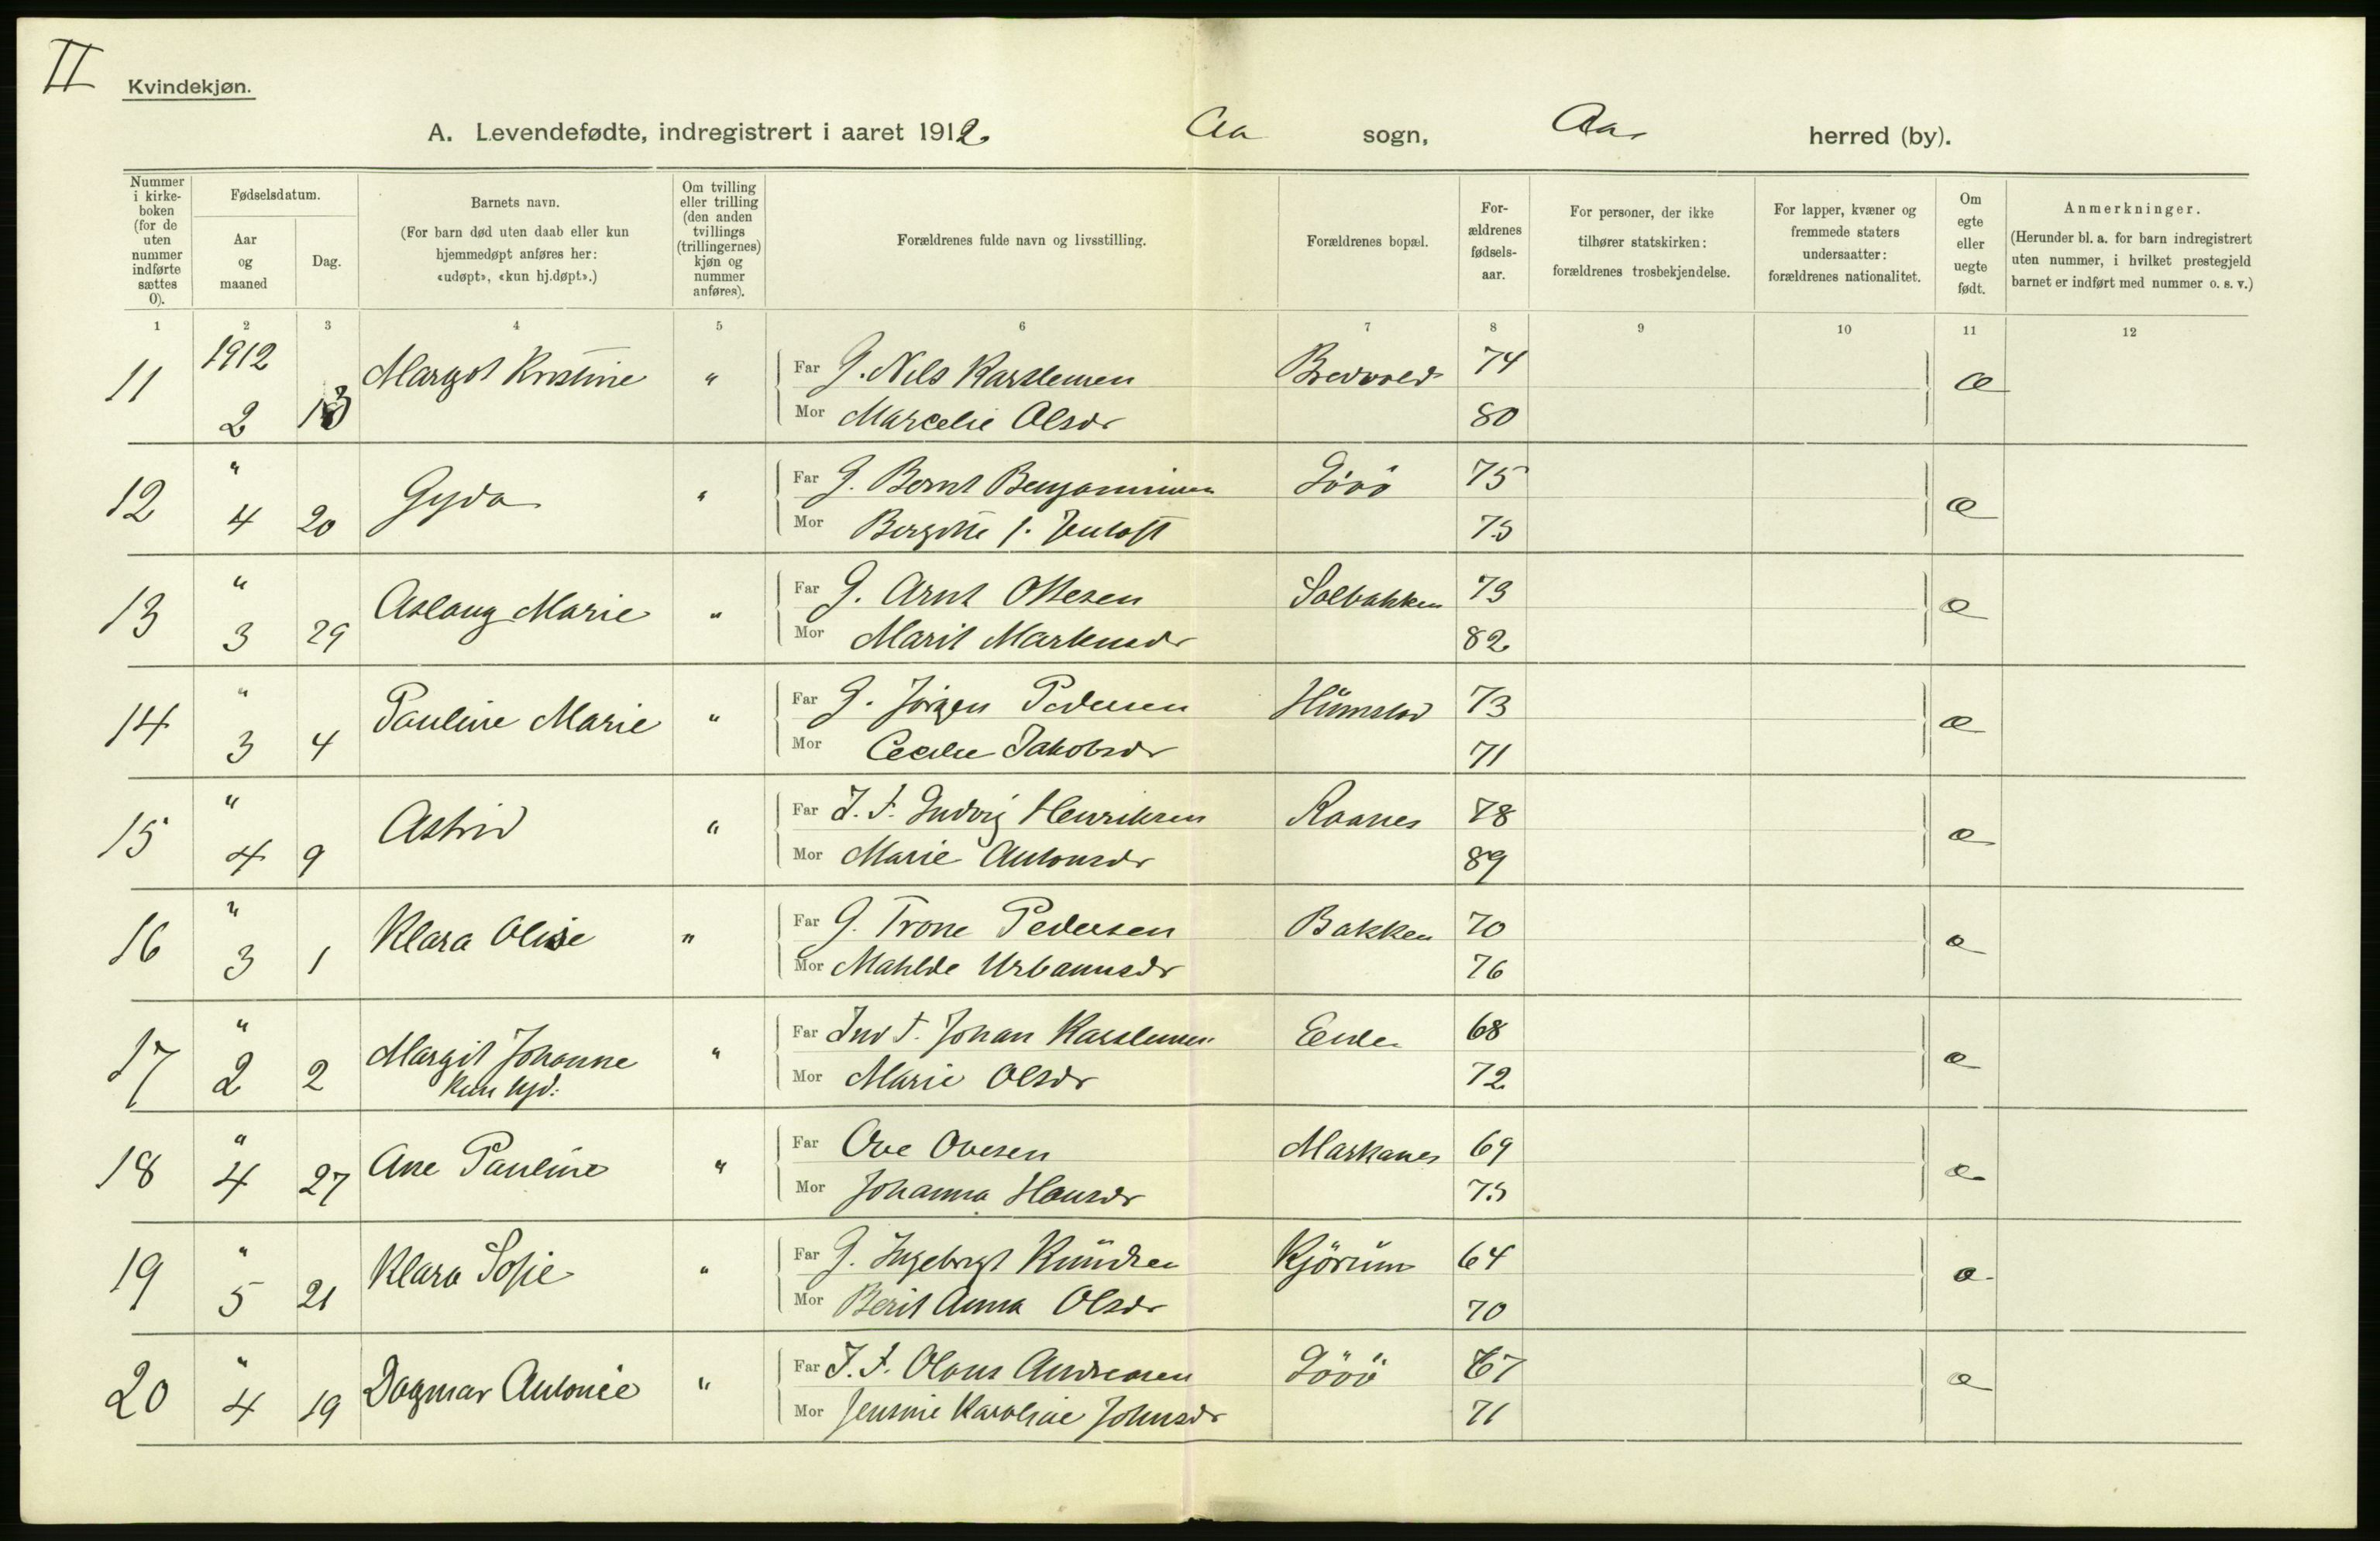 II
Kvindekjøn.
A. Levendefødte, indregistrert i aaret 1912. Aa sogn, Aa herred (by).
Nummer i kirke-boken (for de uten nummer indførte sættes 0).
Fødselsdatum.
Aar og maaned
Dag.
Barnets navn.
(For barn død uten daab eller kun hjemmedøpt anføres her: «udøpt», «kun hj.døpt».)
Om tvilling eller trilling (den anden tvillings (trillingernes) kjøn og nummer anføres).
Forældrenes fulde navn og livsstilling.
Forældrenes bopæl.
For-ældrenes fødsels-aar.
For personer, der ikke tilhører statskirken: forældrenes trosbekjendelse.
For lapper, kvæner og fremmede staters undersaatter: forældrenes nationalitet.
Om egte eller uegte født.
Anmerkninger.
(Herunder bl. a. for barn indregistrert uten nummer, i hvilket prestegjeld barnet er indført med nummer o. s. v.)
1 2 3 4 5 6 7 8 9 10 11 12
11 1912 2 13 Margot Kristine " Far G. Nils Karstensen 74 æ
Mor Marcelie Olsdr 80
12 " 4 20 Gyda " Far G. Bernt Benjaminsen 75 æ
Mor Bergitte f. 75
13 " 3 29 Aslaug Marie " Far G. Arnt Ottesen Solbakken 73 æ
Mor Marit Martensdr 82
14 " 3 4 Pauline Marie " Far G. Jörgen Pedersen 73 æ
Mor Cecilie Jakobsdr 71
15 " 4 9 Astrid " Far I. F. Ludvig Henriksen Raanes 78 æ
Mor Marie Antonsdr 89
16 " 3 1 Klara Olise " Far G. Trone Pedersen Bakken 70 æ
Mor Matilde Urbanusdr 76
17 " 2 2 Margit Johanne " Far Ind F. Johan Karstensen 68 æ
kun hjd: Mor Marie Olsdr 72
18 " 4 27 Ane Pauline " Far Ove Ovesen Markanes 69 æ
Mor Johanna Hansdr 75
19 " 5 21 Klara Sofie " Far G. Ingebrigt Knudsen Kjörum 64 æ
Mor Berit Anna Olsdr 70
20 " 4 19 Dagmar Antonie " Far I. F. Olaus Andreasen 67 æ
Mor Jensine Karoline Johnsdr 71